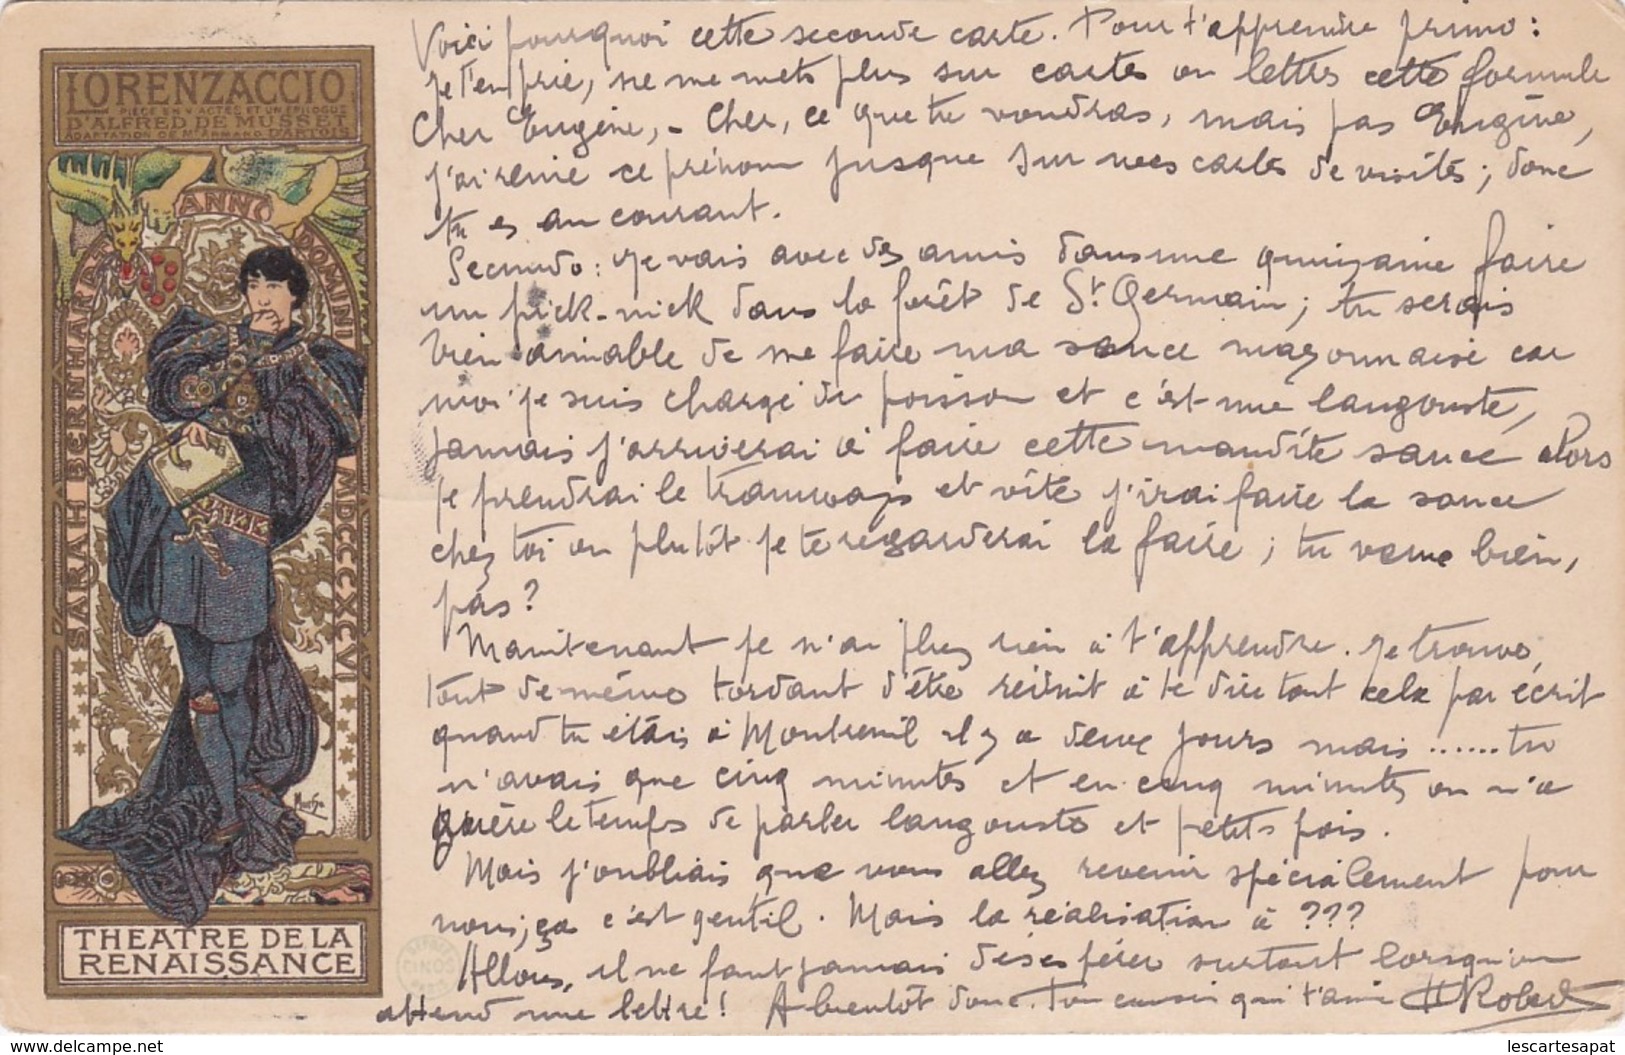 LORENZACCIO
PIECE EN V ACTES ET UN EPILOGUE
D'ALFRED DE MUSSET
ADAPTATION DE Mr ARMAND D'ARTOIS
ANNO DOMINI MDCCCXCVI
SARAH BERNHARDT
Mucha
THEATRE DE LA
RENAISSANCE
CINOS
Voici pourquoi cette seconde carte. Pour t'apprendre primo :
je t'en prie, ne me mets plus sur cartes ou lettres cette formule
Cher Eugène, - Cher, ce que tu voudras, mais pas Eugène,
j'ai renié ce prénom jusque sur mes cartes de visites ; donc
tu es au courant.
Secundo : je vais avec des amis dans une quinzaine faire
un pick-nick dans la forêt de St. Germain ; tu serais
bien aimable de me faire ma sauce mayonnaise car
moi je suis chargé du poisson et c'est une langouste,
jamais j'arriverai à faire cette maudite sauce alors
je prendrai le tramways et vite j'irai faire la sauce
chez toi ou plutôt je te regarderai la faire ; tu veux bien,
pas ?
Maintenant je n'ai plus rien à t'apprendre. Je trouve,
tout de même tordant d'être réduit à te dire tout cela par écrit
quand tu étais à Montreuil il y a deux jours mais ...... tu
n'avais que cinq minutes et en cinq minutes on n'a
guère le temps de parler langouste et petits pois.
Mais j'oubliais que vous allez revenir spécialement pour
nous, ça c'est gentil. Mais la réalisation à ???
Allons, il ne faut jamais désespérer surtout lorsqu'on
attend une lettre ! A bientôt donc. Ton cousin qui t'aime H Robert
www.delcampe.net
lescartesapat